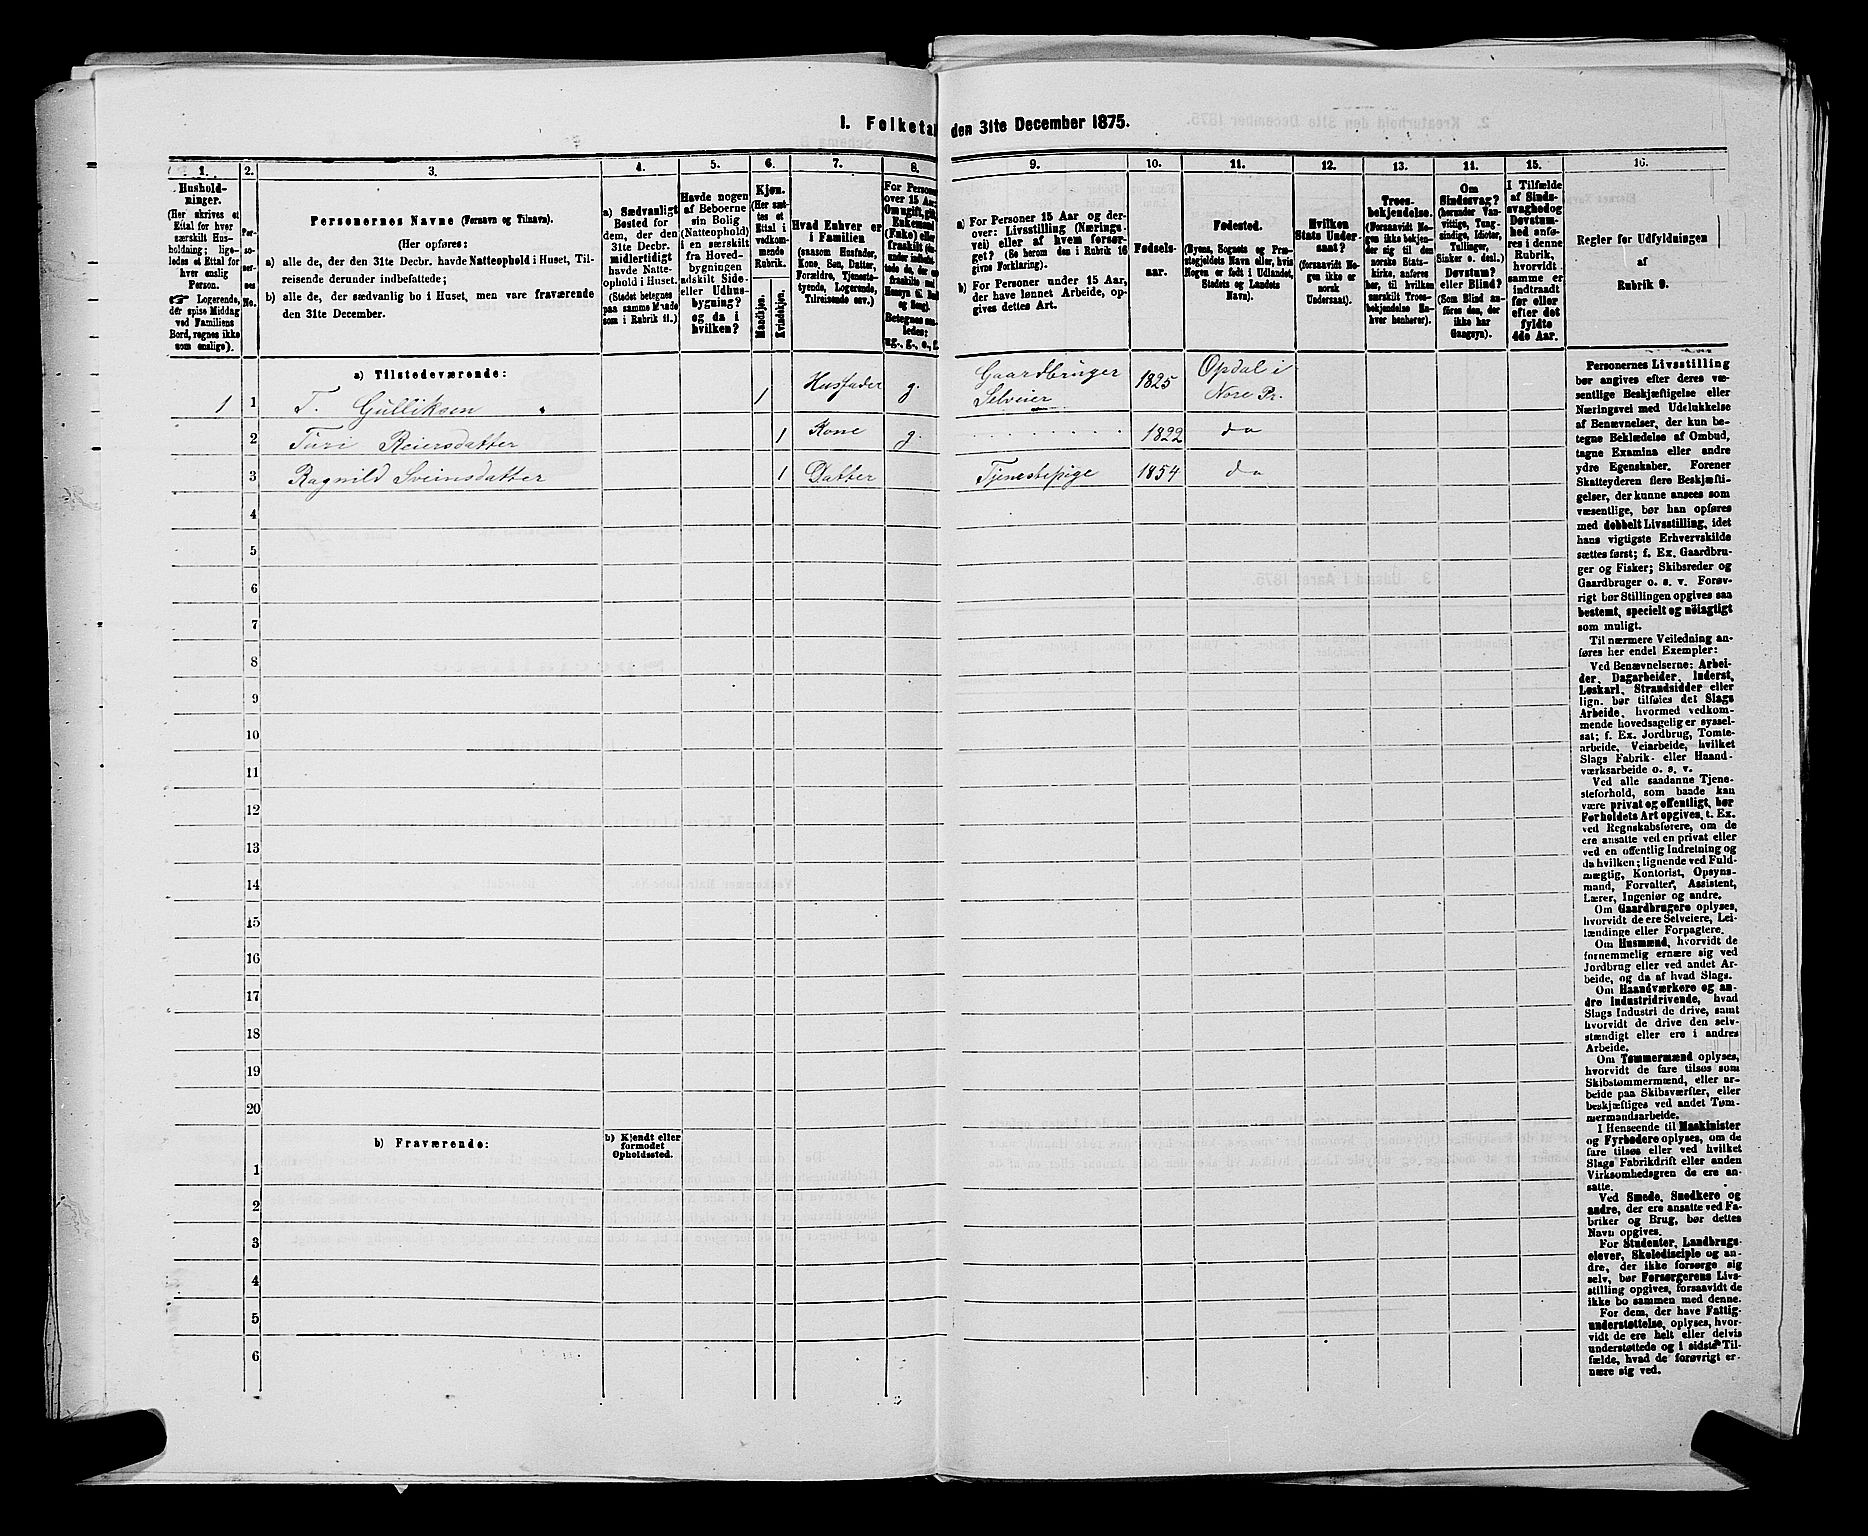 I. Folketal den 31te December 1875.
1. 2. 3. 4. 5. 6. 7. 8. 9. 10. 11. 12. 13. 14. 15. 16.
Hushold-
ninger.
(Her skrives et
Ettal for hver
særskilt Hus-
holdning; lige-
ledes et Ettal for
hver enslig
Person.
☛ Logerende,
der spise Middag
ved Familiens
Bord, regnes ikke
som enslige).
Per-
so-
ner-
nes
No.
Personernes Navne (Fornavn og Tilnavn).
(Her opføres:
a) alle de, der den 31te Decbr. havde Natteophold i Huset, Til-
reisende derunder indbefattede;
b) alle de, der sædvanlig bo i Huset, men vare fraværende
den 31te December.
a) Sædvanligt
Bosted for
dem, der den
31te Decbr.
midlertidigt
havde Natte-
ophold i Huset.
(Stedet betegnes
paa samme Maade
som i Rubrik 11.)
Havde nogen
af Beboerne
sin Bolig
(Natteophold)
i en særskilt
fra Hoved-
bygningen
adskilt Side-
eller Udhus-
bygning?
og da i
hvilken?
Kjøn.
(Her sæt-
tes et
Ettal i
vedkom-
mende
Rubrik.
Mandkjøn.
Kvindekjøn.
Hvad Enhver er
i Familien
(saasom Husfader,
Kone, Søn, Datter,
Forældre, Tjeneste-
tyende, Logerende,
Tilreisende osv.)
For Personer
over 15 Aar:
Om ugift, gift,
Enkemand
(Enke) eller
fraskilt
Betegnes saa-
ledes:
ug., g., e., f.
a) For Personer 15 Aar og der-
over: Livsstilling (Nærings-
vei) eller af hvem forsør-
get? (Se herom den i Rubrik 16
givne Forklaring).
b) For Personer under 15 Aar,
der have lønnet Arbeide, op-
gives dettes Art.
Fødsels-
aar.
Fødested.
(Byens, Sognets og Præ-
stegjeldets Navn eller, hvis
Nogen er født i Udlandet,
Stedets og Landets
Navn).
Hvilken
Stats Under-
saat?
(forsaavidt No-
gen ikke er
norsk
Undersaat).
Troes-
bekjendelse.
(Forsaavidt No-
gen ikke bekjen-
der sig til den
norske Stats-
kirke, anføres
her, til hvilken
særskilt Troes-
bekjendelse En-
hver henhører).
Om
Sindssvag?
(herunder Van-
vittige, Tung-
sindige, Idioter,
Tullinger,
Sinker o. desl.)
Døvstum?
eller Blind?
(Som Blind an-
føres den, der
ikke har
Gangsyn).
I Tilfælde
af Sinds-
svaghed og
Døvstum-
hed anfø-
res i denne
Rubrik,
hvorvidt
samme er
indtraadt
før eller
efter det
fyldte
4de Aar.
Regler for Udfyldningen
af
Rubrik 9.
a) Tilstedeværende:
1 1 T. Gulliksen 1 Husfader g. Gaardbruger Selveier 1825 Opdal i Nore Pr.
2 Turi Reiersdatter 1 Kone g. 1822 do
3 Ragnild Sveinsdatter 1 Datter Tjenestepige 1854 do
4
5
6
7
8
9
10
11
12
13
14
15
16
17
18
19
20
b) Fraværende:
b) Kjendt eller
formodet
Opholdssted.
1
2
3
4
5
6
Personernes Livsstilling
bør angives efter deres væ-
sentlige Beskjæftigelse eller
Næringsvei med Udelukkelse
af Benævnelser, der kun be-
tegne Beklædelse af Ombud,
tagne Examina eller andre
ydre Egenskaber. Forener
Skatteyderen flere Beskjæfti-
gelser, der kunne ansees som
væsentlige, bør han opføres
med dobbelt Livsstilling, idet
hans vigtigste Erhvervskilde
sættes først; f. Ex. Gaardbru-
ger og Fisker; Skibsreder og
Gaardbruger o. s. v. Forøv-
rigt bør Stillingen opgives saa
bestemt, specielt og nöiagtigt
som muligt.
Til nærmere Veiledning an-
føres her endel Exempler:
Ved Benævnelserne: Arbei-
der, Dagarbeider, Inderst,
Løskarl, Strandsidder eller
lign. bør tilføies det Slags
Arbeide, hvormed vedkom-
mende hovedsagelig er syssel-
sat; f. Ex. Jordbrug, Tomte-
arbeide, Veiarbeide, hvilket
Slags Fabrik- eller Haand-
værksarbeide o. s. v.
Ved alle saadanne Tjene-
steforhold, som baade kan
være privat og offentligt, bør
Forholdets Art opgives, t. Ex.
ved Regnskabsførere, om de
ere ansatte ved en privat eller
ved en offentlig Indretning og
da hvilken; lignende ved Fuld-
mægtig, Kontorist, Opsyns-
mand, Forvalter, Assistent,
Lærer, Ingeniør og andre.
Om Gaardbrugere oplyses,
hvorvidt de ere Selveiere, Lei-
lændinge eller Forpagtere.
Om Husmænd, hvorvidt de
fornemmelig ernære sig ved
Jordbrug eller ved andet Ar-
beide, og da af hvad Slags.
Om Haandværkere og an-
dre Industridrivende, hvad
Slags Industri de drive, samt
hvorvidt de drive den selv-
stændigt eller ere i andres
Arbeide.
Om Tømmermænd oplyses,
hvorvidt de fare tilsøs som
Skibstømmermænd, eller ar-
beide paa Skibsværfter, eller
beskjæftiges ved andet Tøm-
mermandsarbeide.
I Henseende til Maskinister
og Fyrbødere oplyses, om de
fare tilsøs eller ved hvilket
Slags Fabrikdrift eller anden
Virksomhedsgren de ere an-
satte.
Ved Smede, Snedkere og
andre, der ere ansatte ved Fa-
briker og Brug, bør dettes
Navn opgives.
For Studenter, Landbrugs-
elever, Skoledisciple og an-
dre, der ikke forsørge sig
selv, bør Forsørgerens Livs-
stilling opgives, forsaavidt de
ikke bo sammen med denne.
For dem, der have Fattig-
understøttelse, oplyses, hvor-
vidt de ere helt eller delvis
understøttede og i sidste Til-
fælde, hvad de forøvrigt er-
nære sig ved.